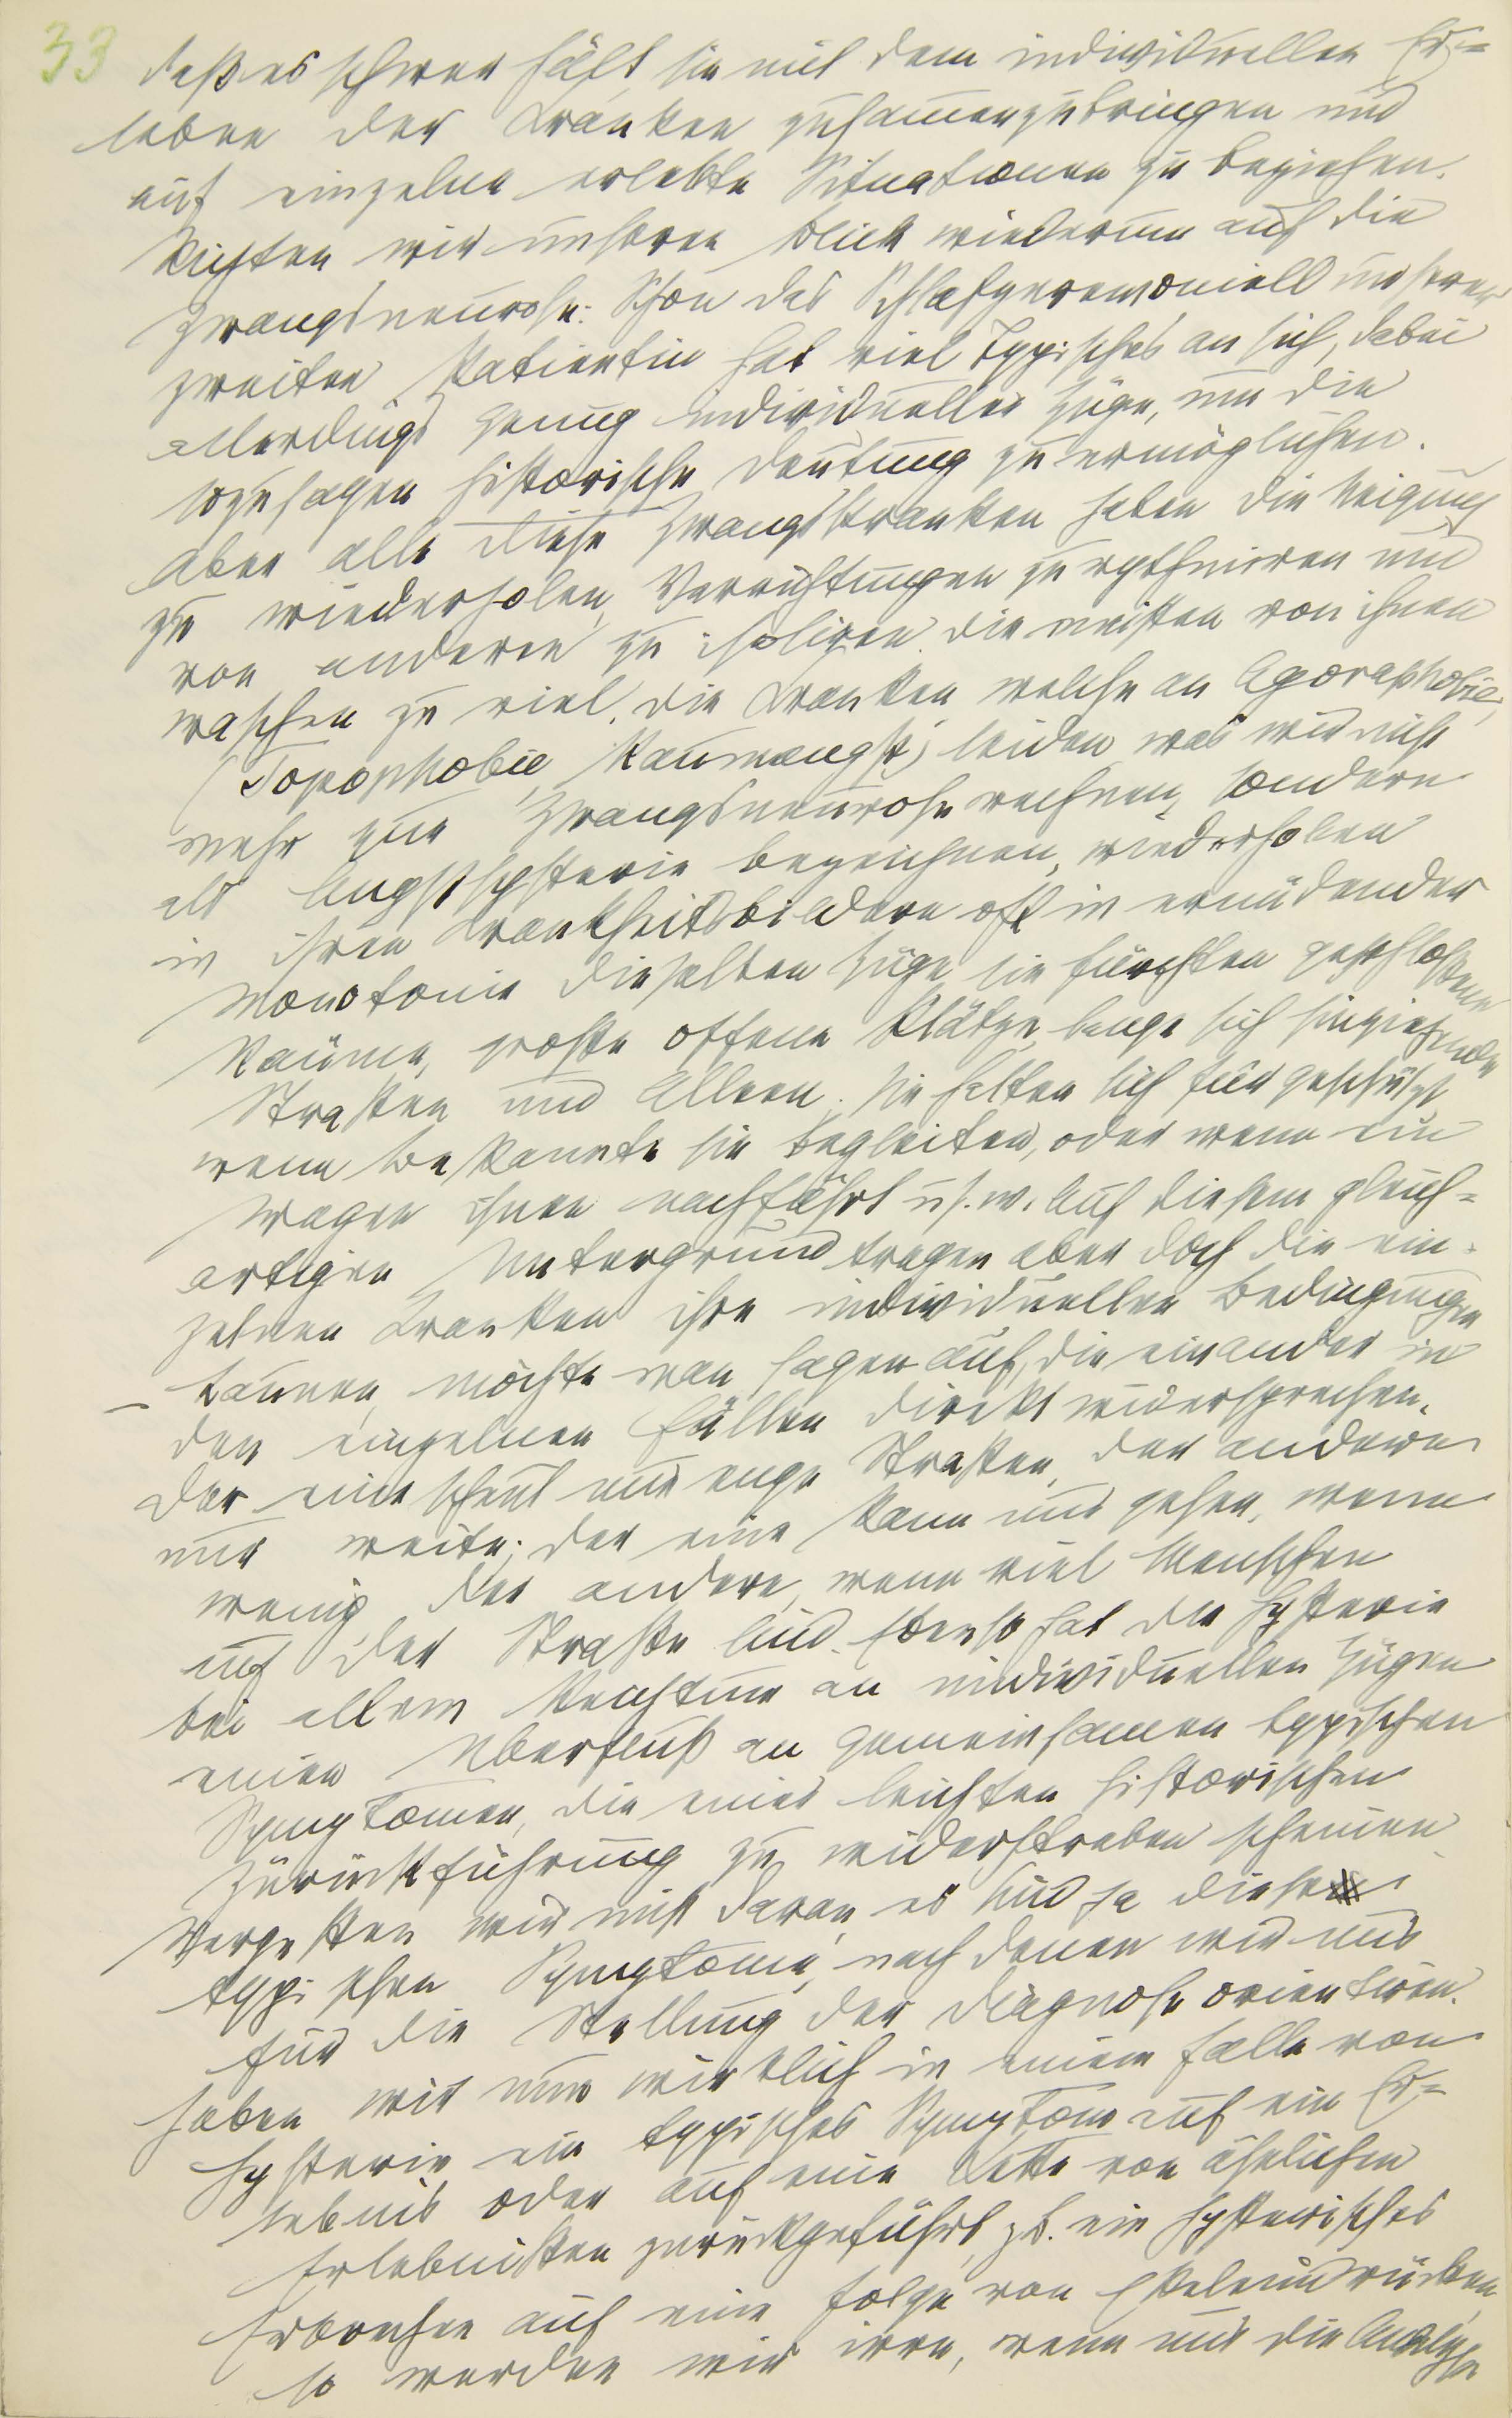 33
daß es schwer hält, sie mit dem individuellen Er=
leben der Kranken zusammenzubringen und
auf einzelne erlebte Situationen zu beziehen.
Richten wir unseren Blick wiederum auf die
Zwangsneurose. Schon das Schlafzeremoniell unserer
zweiten Patientin hat viel Typisches an sich, dabei
allerdings genug individueller Züge, um die
sozusagen historische Deutung zu ermöglichen.
Aber alle diese Zwangskranken haben die Neigung
zu wiederholen, Verrichtungen zu rythmiren und
von anderen zu isoliren. Die meisten von ihnen
waschen zu viel. Die Kranken welche an Agoraphobie,
(Topophobie, Raumangst) leiden was wir nicht
mehr zur Zwangsneurose rechnen, sondern
als Angsthysterie bezeichnen, wiederholen
in ihren Krankheitsbildern oft in ermüdender
Monotonie dieselben Züge, sie fürchten geschlossene
Räume, große offene Plätze, lange sich hinziehende
Straßen und Alleen. Sie halten sich für geschützt,
wenn Bekannte sie begleiten, oder wenn ein
Wagen ihnen nachfährt u.s.w. Auf diesem gleich=
artigen Untergrund tragen aber doch die ein-
zelnen Kranken ihre individuellen Bedingungen
– Launen, möchte man sagen auf, die einander in
den einzelnen Fällen direkt widersprechen.
Der eine scheut nur enge Straßen, der andere
nur weite; der eine kann nur gehen, wenn
wenig, der andere, wenn viel Menschen
auf der Straße sind. Ebenso hat die Hysterie
bei allem Reichtum an individuellen Zügen
einen Überfluß an gemeinsamen typischen
Symptomen, die einer leichten historischen
Zurückführung zu widerstreben scheinen
Vergessen wir nicht daran, es sind ja diese
typischen Symptome, nach denen wir uns
für die Stellung der Diagnose orientiren.
Haben wir nun wirklich in einem Falle von
Hysterie ein typisches Symptom auf ein Er=
lebnis oder auf eine Kette von ähnlichen
Erlebnissen zurückgeführt, z.B. ein hysterisches
Erbrechen auf eine Folge von Ekeleindrücken,
so werden wir irre, wenn uns die Analyse